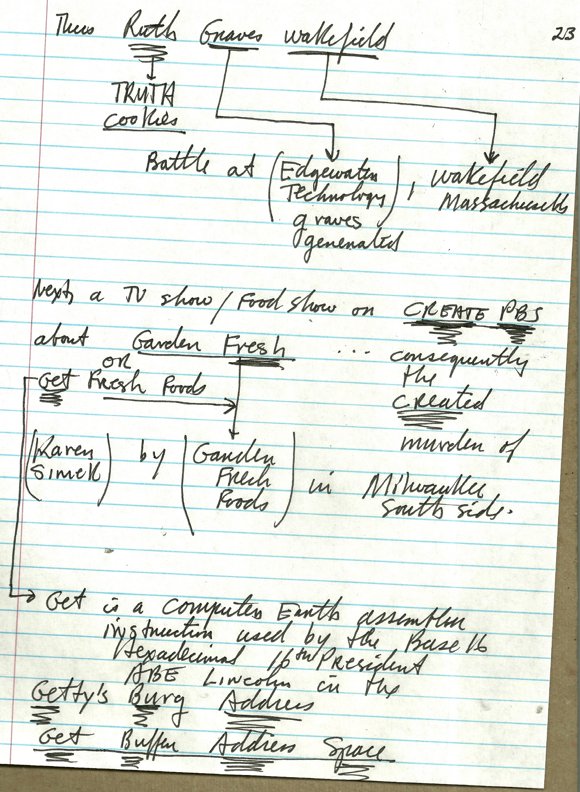 Thus Ruth Graves Wakefield 23
TRUTH
cookies
Battle at (Edgewater
Technology
graves
generated) , Wakefield
Massachusetts
Next, a TV show / Food show on CREATE PBS
about Garden Fresh ... consequently
OR
Get Fresh Foods
the
Created
murder of
(Karen
Simek) by (Garden
Fresh
Foods) in Milwaukee
South side.
Get is a computer Earth assembler
instruction used by the Base 16
Hexadecimal 16th President
ABE Lincoln in the
Getty's Burg Address
Get Buffer Address Space